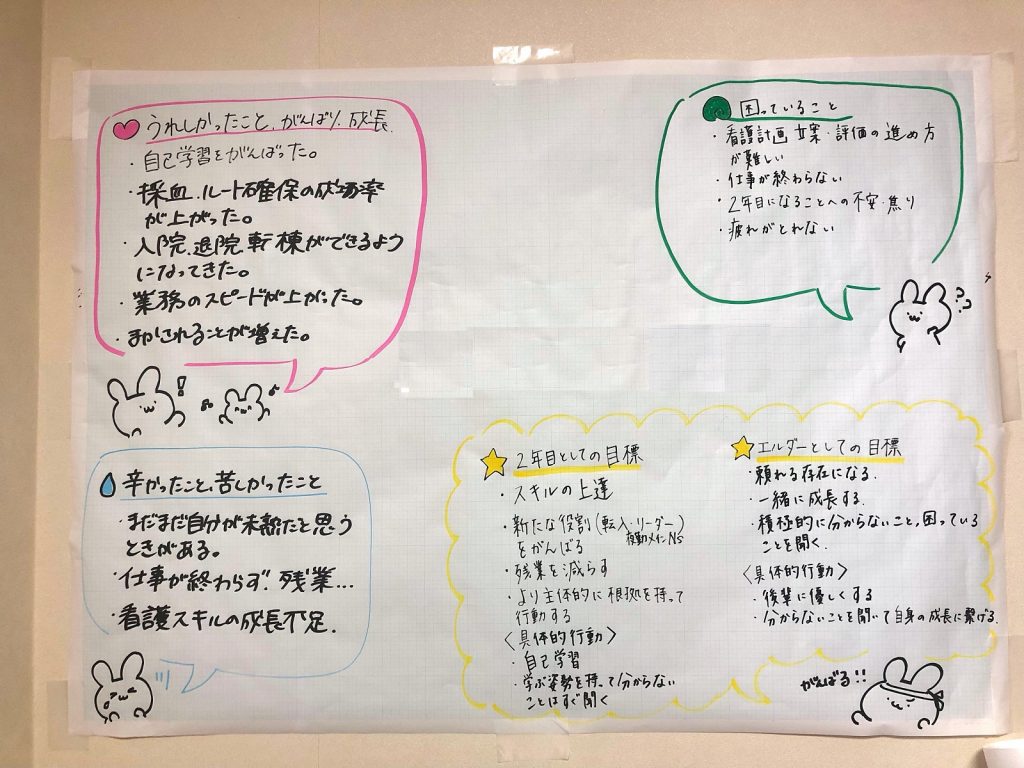 うれしかったこと、がんばり、成長
・自己学習をがんばった。
・採血、ルート確保の成功率
が上がった。
・入院、退院、転棟ができるよう
になってきた。
・業務のスピードが上がった。
・まかされることが増えた。
困っていること
・看護計画 立案・評価の進め方
が難しい
・仕事が終わらない
・2年目になることへの不安・焦り
・疲れがとれない
??
辛かったこと、苦しかったこと
・まだまだ自分が未熟だと思う
ときがある。
・仕事が終わらず、残業…
・看護スキルの成長不足.
2年目としての目標
・スキルの上達
・新たな役割(転入・リーダー)
夜勤メインNs
をがんばる
・残業を減らす
・より主体的に根拠を持って
行動する
〈具体的行動〉
・自己学習
・学ぶ姿勢を持って分からない
ことはすぐ聞く
エルダーとしての目標
・頼れる存在になる.
・一緒に成長する.
・積極的に分からないこと,困っている
ことを聞く.
〈具体的行動〉
・後輩に優しくする
・分からないことを聞いて自身の成長に繋げる.
がんばる!!